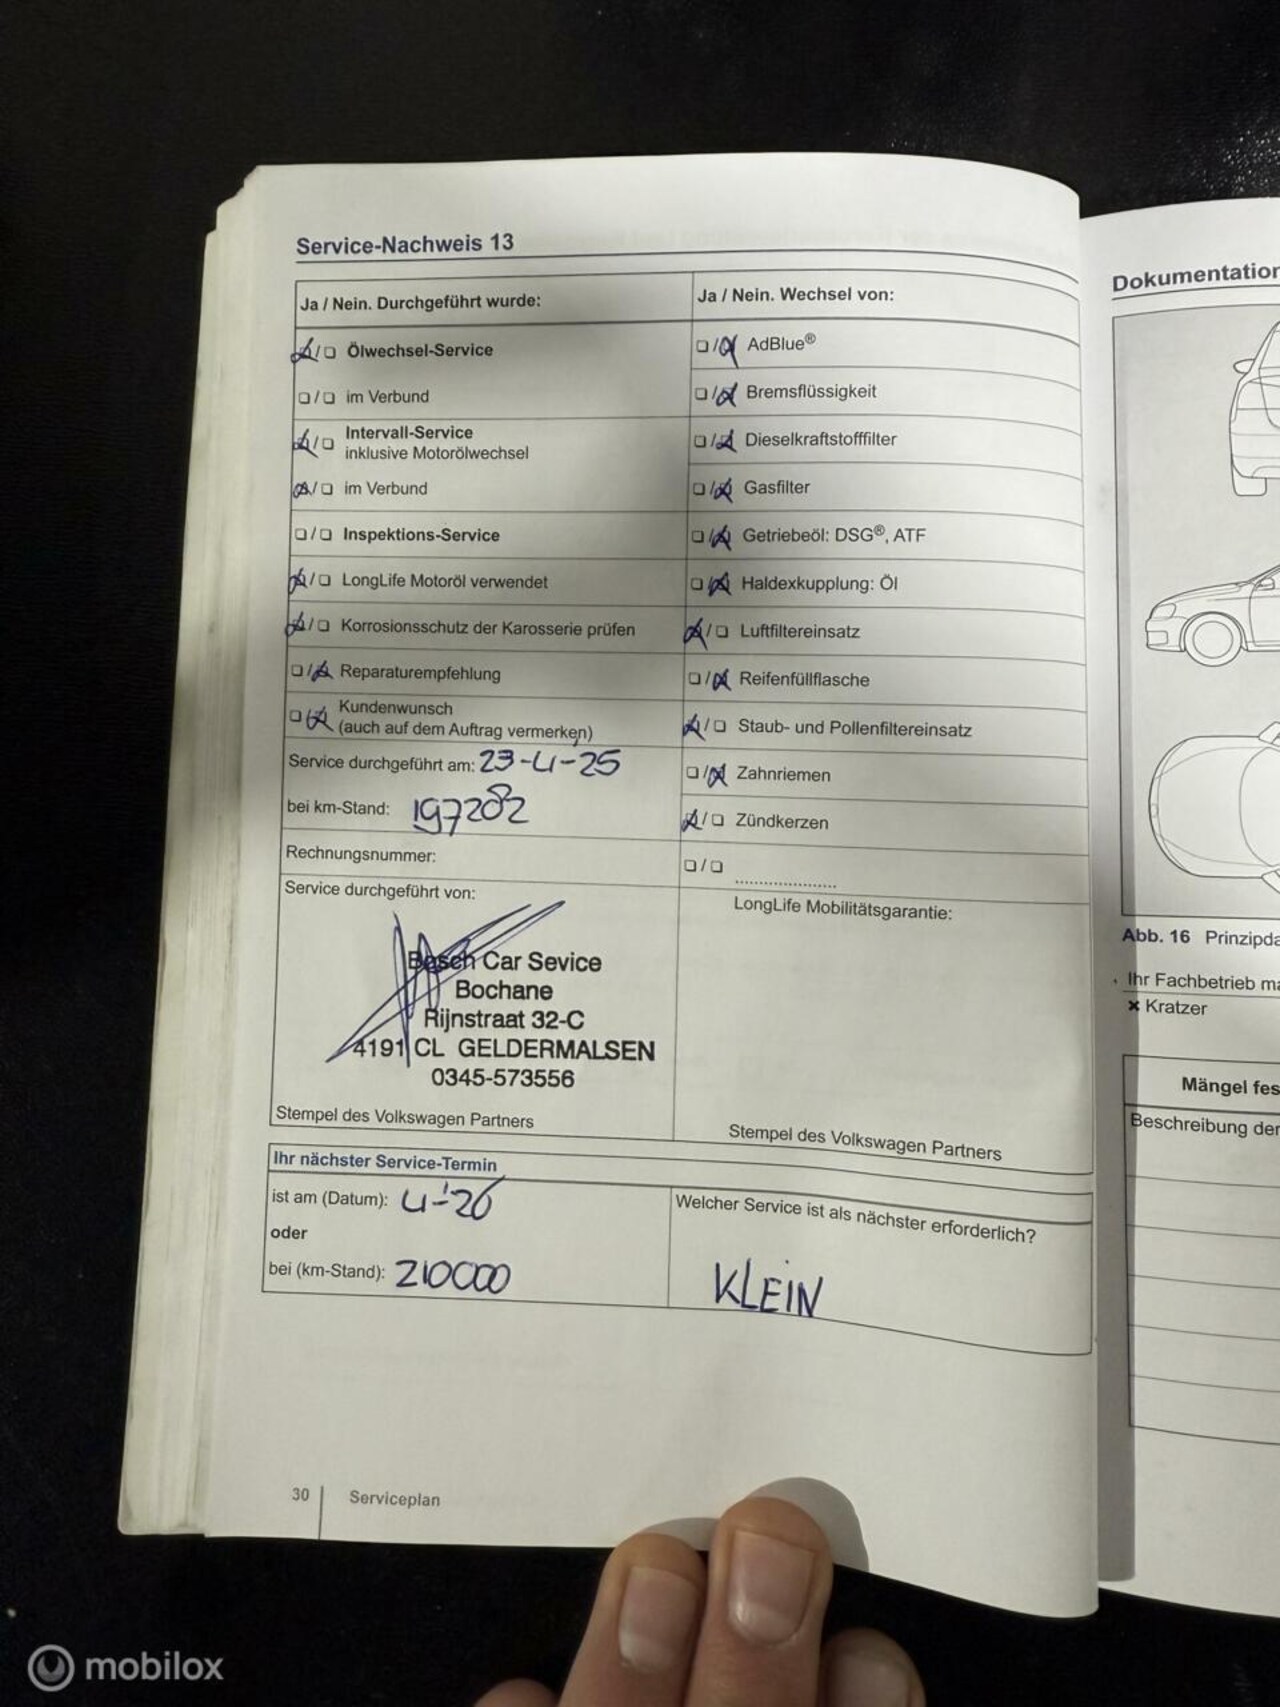 Service-Nachweis 13
Ja / Nein. Durchgeführt wurde:
Ölwechsel-Service
im Verbund
Intervall-Service
inklusive Motorölwechsel
im Verbund
Inspektions-Service
LongLife Motoröl verwendet
Korrosionsschutz der Karosserie prüfen
Reparaturempfehlung
Kundenwunsch
(auch auf dem Auftrag vermerken)
Service durchgeführt am: 23-4-25
bei km-Stand: 197282
Rechnungsnummer:
Service durchgeführt von:
Bosch Car Sevice
Bochane
Rijnstraat 32-C
4191 CL GELDERMALSEN
0345-573556
Stempel des Volkswagen Partners
Ja / Nein. Wechsel von:
AdBlue®
Bremsflüssigkeit
Dieselkraftstofffilter
Gasfilter
Getriebeöl: DSG®, ATF
Haldexkupplung: Öl
Luftfiltereinsatz
Reifenfüllflasche
Staub- und Pollenfiltereinsatz
Zahnriemen
Zündkerzen
....................
LongLife Mobilitätsgarantie:
Stempel des Volkswagen Partners
Ihr nächster Service-Termin
ist am (Datum): 4-'26
oder
bei (km-Stand): 210000
Welcher Service ist als nächster erforderlich?
KLEIN
30 Serviceplan
Dokumentation
Abb. 16 Prinzipda
Ihr Fachbetrieb ma
× Kratzer
Mängel fes
Beschreibung der
mobilox